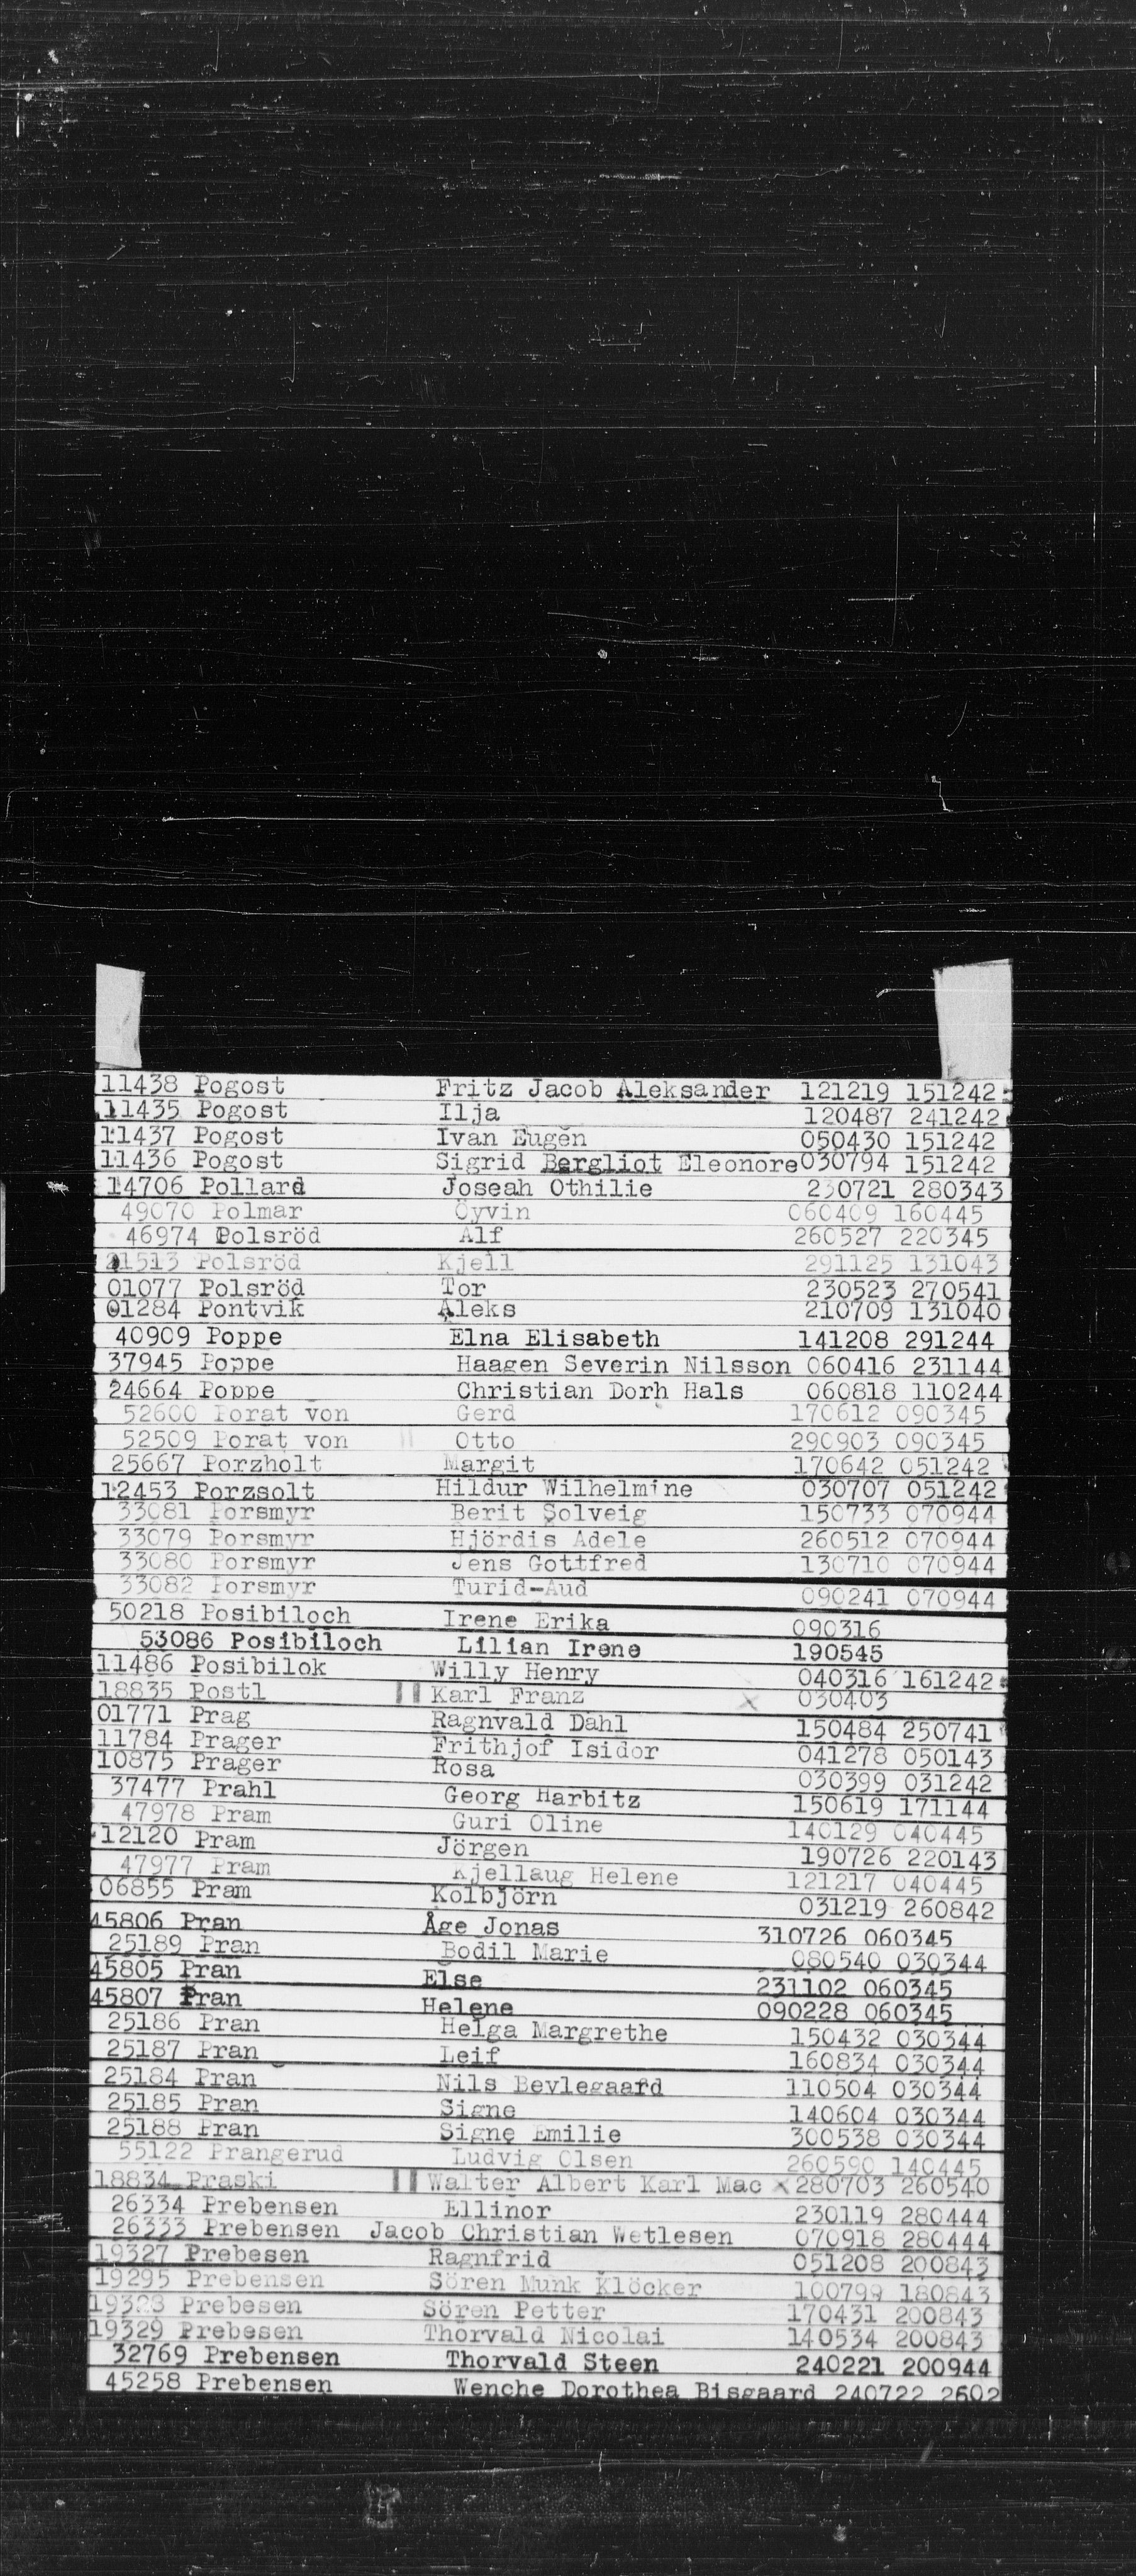 11438 Pogost Fritz Jacob Aleksander 121219 151242
11435 Pogost Ilja 120487 241242
11437 Pogost Ivan Eugen 050430 151242
11436 Pogost Sigrid Bergliot Eleonore 030794 151242
14706 Pollard Joseah Othilie 230721 280343
49070 Polmar Öyvin 060409 160445
46974 Polsröd Alf 260527 220345
21513 Polsröd Kjell 291125 131043
01077 Polsröd Tor 230523 270541
01284 Pontvik Aleks 210709 131040
40909 Poppe Elna Elisabeth 141208 291244
37945 Poppe Haagen Severin Nilsson 060416 231144
24664 Poppe Christian Dorh Hals 060818 110244
52600 Porat von Gerd 170612 090345
52509 Porat von Otto 290903 090345
25667 Porzholt Margit 170642 051242
12453 Porzsolt Hildur Wilhelmine 030707 051242
33081 Porsmyr Berit Solveig 150733 070944
33079 Porsmyr Hjördis Adele 260512 070944
33080 Porsmyr Jens Gottfred 130710 070944
33082 Porsmyr Turid-Aud 090241 070944
50218 Posibiloch Irene Erika 090316
53086 Posibiloch Lilian Irene 190545
11486 Posibilok Willy Henry 040316 161242
18835 Postl Karl Franz x 030403
01771 Prag Ragnvald Dahl 150484 250741
11784 Prager Frithjof Isidor 041278 050143
10875 Prager Rosa 030399 031242
37477 Prahl Georg Harbitz 150619 171144
47978 Pram Guri Oline 140129 040445
12120 Pram Jörgen 190726 220143
47977 Pram Kjellaug Helene 121217 040445
06855 Pram Kolbjörn 031219 260842
45806 Pran Åge Jonas 310726 060345
25189 Pran Bodil Marie 080540 030344
45805 Pran Else 231102 060345
45807 Pran Helene 090228 060345
25186 Pran Helga Margrethe 150432 030344
25187 Pran Leif 160834 030344
25184 Pran Nils Bevlegaard 110504 030344
25185 Pran Signe 140604 030344
25188 Pran Signe Emilie 300538 030344
55122 Prangerud Ludvig Olsen 260590 140445
18834 Praski Walter Albert Karl Mac x 280703 260540
26334 Prebensen Ellinor 230119 280444
26333 Prebensen Jacob Christian Wetlesen 070918 280444
19327 Prebesen Ragnfrid 051208 200843
19295 Prebensen Sören Munk Klöcker 100799 180843
19328 Prebesen Sören Petter 170431 200843
19329 Prebesen Thorvald Nicolai 140534 200843
32769 Prebensen Thorvald Steen 240221 200944
45258 Prebensen Wenche Dorothea Bisgaard 240722 2602